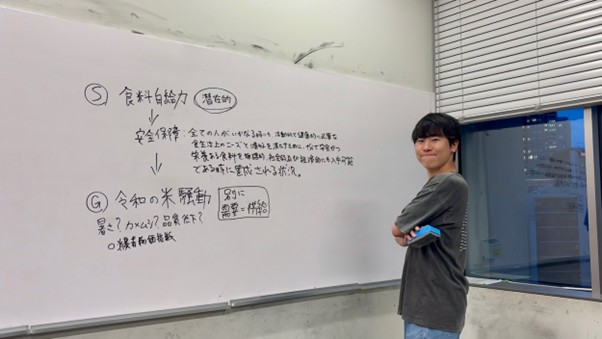 Ⓢ 食料自給力 潜在的
安全保障：全ての人がいかなる時にも、活動的で健康的に必要な
食生活上のニーズと嗜好を満たすために、十分で安全かつ
栄養ある食料を物理的、社会的及び経済的にも入手可能
である時に達成される状況。
Ⓖ 令和の米騒動
別に
需要=供給
暑さ？カメムシ？品質低下？